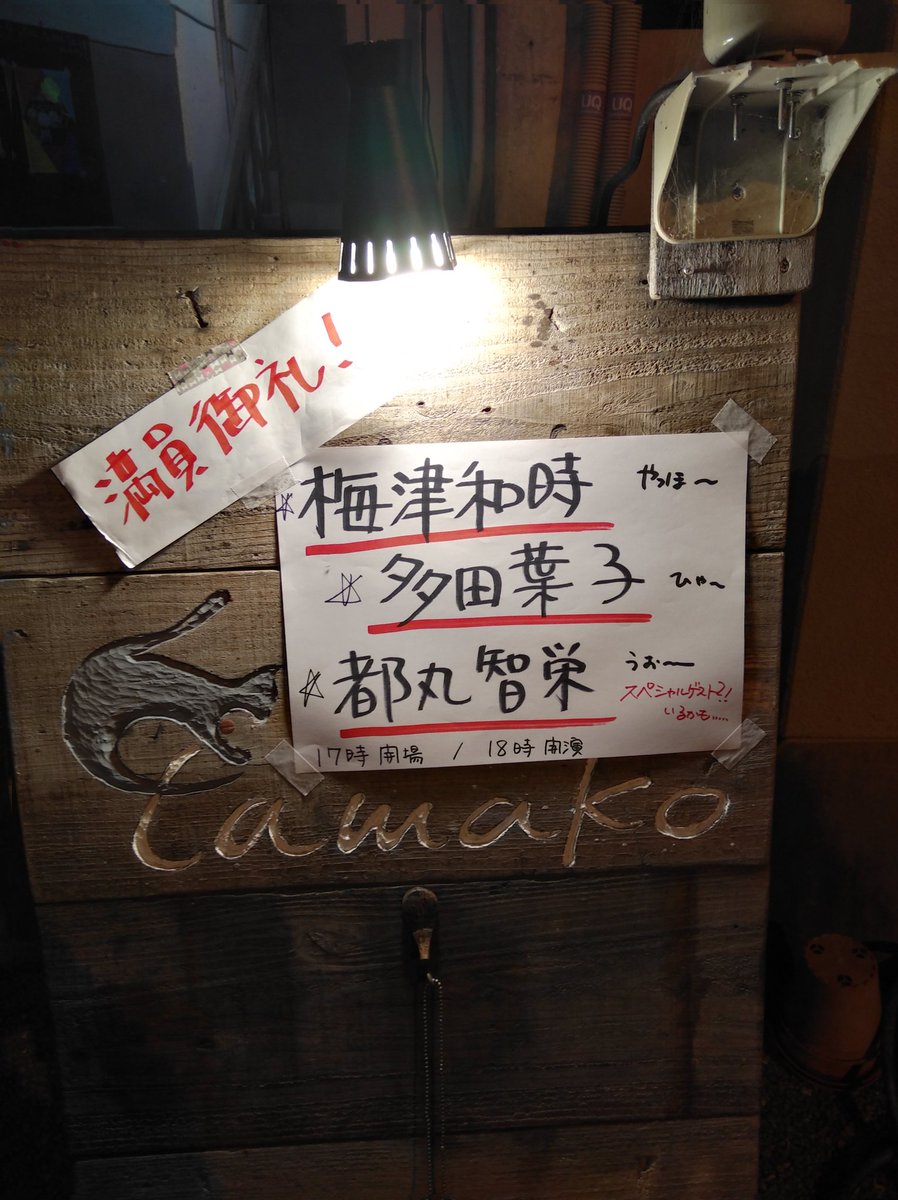 UQ UQ
満員御礼!
☆梅津和時 やっほ〜
☆多田葉子 ひゃ〜
☆都丸智栄 うぉ〜
スペシャルゲスト?!
いるかも.....
17時開場 / 18時開演
Camako